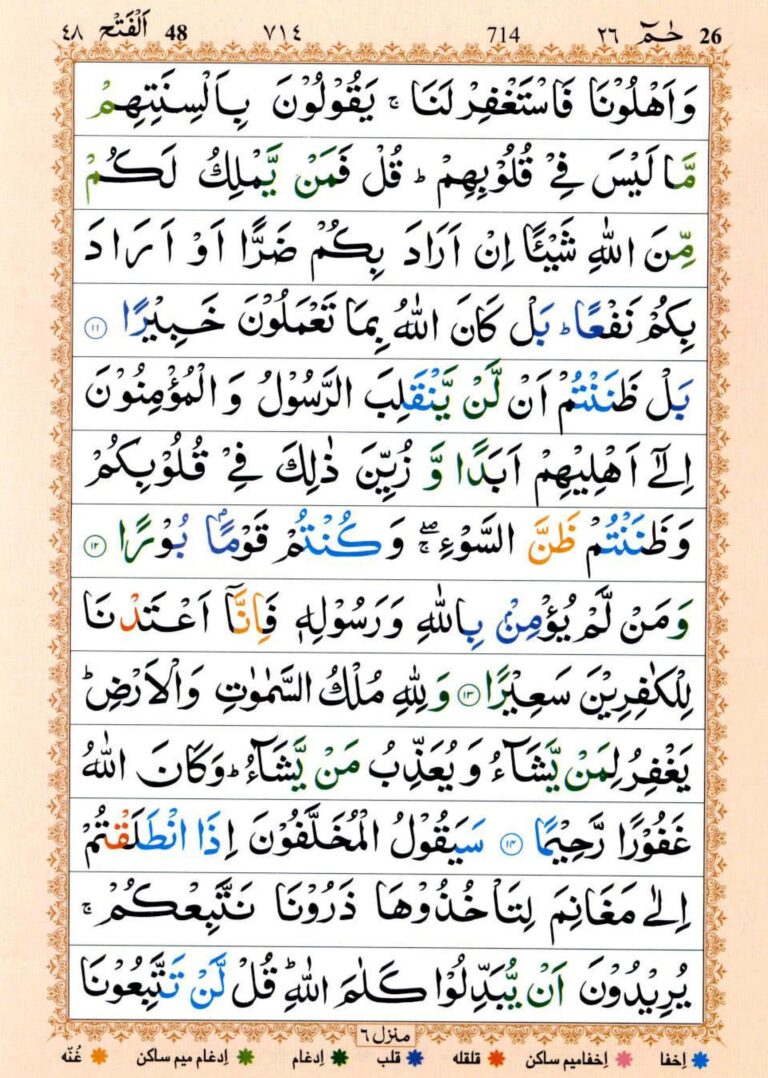 ٤٨ اَلْفَتْح 48 ٧١٤ 714 ٢٦ حٰمٓ 26
وَاَهْلُوْنَا فَاسْتَغْفِرْ لَنَا ۚ يَقُوْلُوْنَ بِاَلْسِنَتِهِمْ
مَّا لَيْسَ فِيْ قُلُوْبِهِمْ ؕ قُلْ فَمَنْ يَّمْلِكُ لَكُمْ
مِّنَ اللّٰهِ شَيْـًٔا اِنْ اَرَادَ بِكُمْ ضَرًّا اَوْ اَرَادَ
بِكُمْ نَفْعًا ؕ بَلْ كَانَ اللّٰهُ بِمَا تَعْمَلُوْنَ خَبِيْرًا ١١
بَلْ ظَنَنْتُمْ اَنْ لَّنْ يَّنْقَلِبَ الرَّسُوْلُ وَالْمُؤْمِنُوْنَ
اِلٰٓى اَهْلِيْهِمْ اَبَدًا وَّ زُيِّنَ ذٰلِكَ فِيْ قُلُوْبِكُمْ
وَظَنَنْتُمْ ظَنَّ السَّوْءِ ۖۚ وَكُنْتُمْ قَوْمًۢا بُوْرًا ١٢
وَمَنْ لَّمْ يُؤْمِنْۢ بِاللّٰهِ وَرَسُوْلِهٖ فَاِنَّاۤ اَعْتَدْنَا
لِلْكٰفِرِيْنَ سَعِيْرًا ١٣ وَلِلّٰهِ مُلْكُ السَّمٰوٰتِ وَالْاَرْضِ ؕ
يَغْفِرُ لِمَنْ يَّشَآءُ وَيُعَذِّبُ مَنْ يَّشَآءُ ؕ وَكَانَ اللّٰهُ
غَفُوْرًا رَّحِيْمًا ١٤ سَيَقُوْلُ الْمُخَلَّفُوْنَ اِذَا انْطَلَقْتُمْ
اِلٰى مَغَانِمَ لِتَاْخُذُوْهَا ذَرُوْنَا نَتَّبِعْكُمْ ۚ
يُرِيْدُوْنَ اَنْ يُّبَدِّلُوْا كَلٰمَ اللّٰهِ ؕ قُلْ لَّنْ تَتَّبِعُوْنَا
منزل ٦
اِخفا اِخفامیم ساکن قلقله قلب اِدغام اِدغام میم ساکن غُنّه